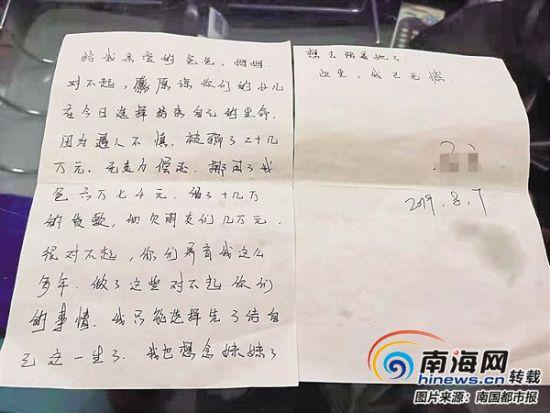 给我亲爱的爸爸、妈妈
对不起，原谅你们的女儿
在今日选择结束自己的生命.
因为遇人不慎，被骗了二十几
万元.无支力偿还.挪用了我
爸六万七千元.借了十几万
的贷款，欠朋友们几万元.
很对不起，你们养育我这么
多年.做了这些对不起你们
的事情.我只能选择先了结自
己这一生了.我也想念妹妹了
想去陪着她了.
此生，我已无憾.
2019.8.7
南海网
hinews.cn 转载
图片来源：南国都市报